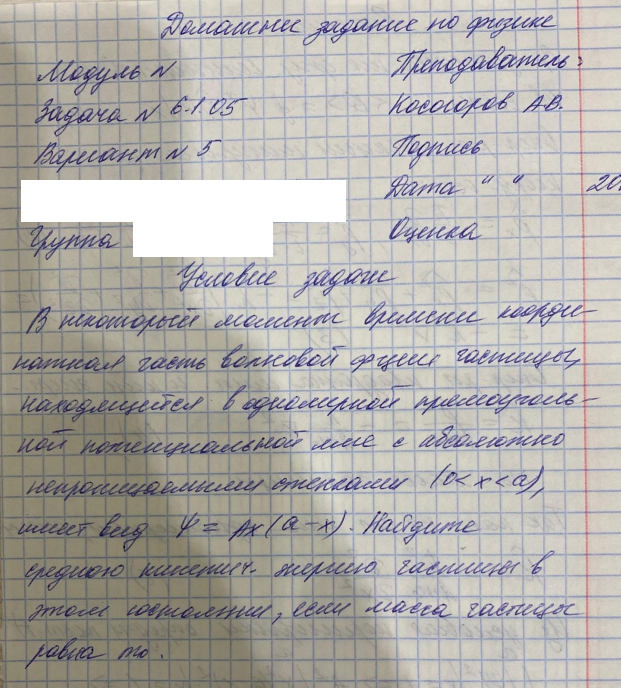 Домашнее задание по физике
Модуль N
Преподаватель:
Задача N 6.1.05
Косогоров А.В.
Вариант N 5
Подпись
Дата " " 20
Группа
Оценка
Условие задачи
В некоторый момент времени коорди-
натная часть волновой функции частицы,
находящейся в одномерной прямоуголь-
ной потенциальной яме с абсолютно
непроницаемыми стенками (0<x<a),
имеет вид Ψ = Ax(a-x). Найдите
среднюю кинетич. энергию частицы в
этом состоянии, если масса частицы
равна m₀.